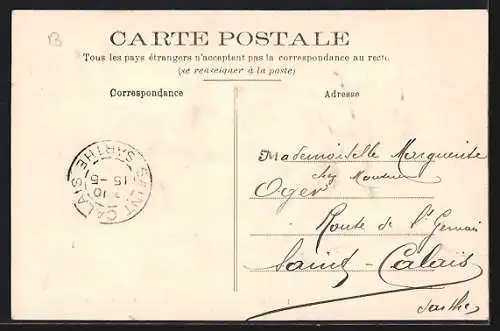 B
CARTE POSTALE
Tous les pays étrangers n'acceptent pas la correspondance au recto
(se renseigner à la poste)
Correspondance
Adresse
Mademoiselle Marguerite
chez
Oger
Route de St Gervais
Saint-Calais
Sarthe
SAINT CALAIS
SARTHE
15-5
10